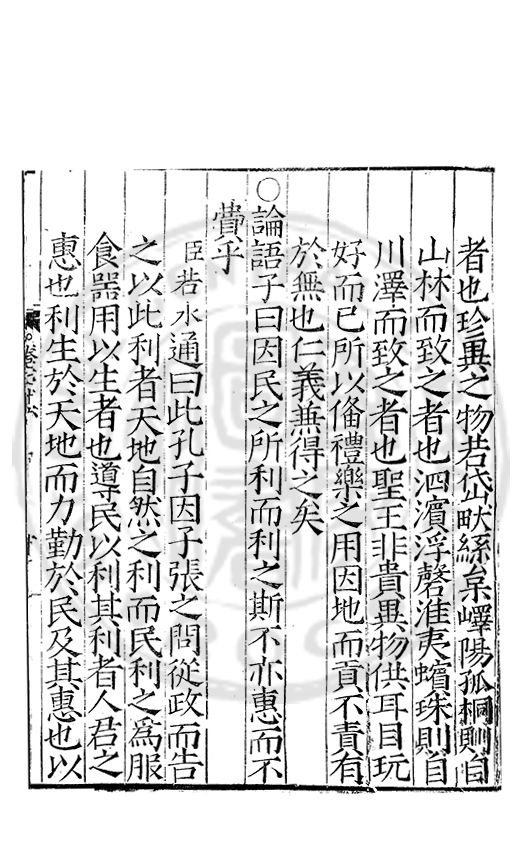 者也珍異之物若岱畎絲枲嶧陽孤桐則自
山林而致之者也泗濱浮磬淮夷蠙珠則自
川澤而致之者也聖王非貴異物供耳目玩
好而已所以俻禮樂之用因地而貢不責有
於無也仁義兼得之矣
○論語子曰因民之所利而利之斯不亦惠而不
費乎
臣若水通曰此孔子因子張之問從政而告
之以此利者天地自然之利而民利之為服
食器用以生者也導民以利其利者人君之
惠也利生於天地而力勤於民及其惠也以